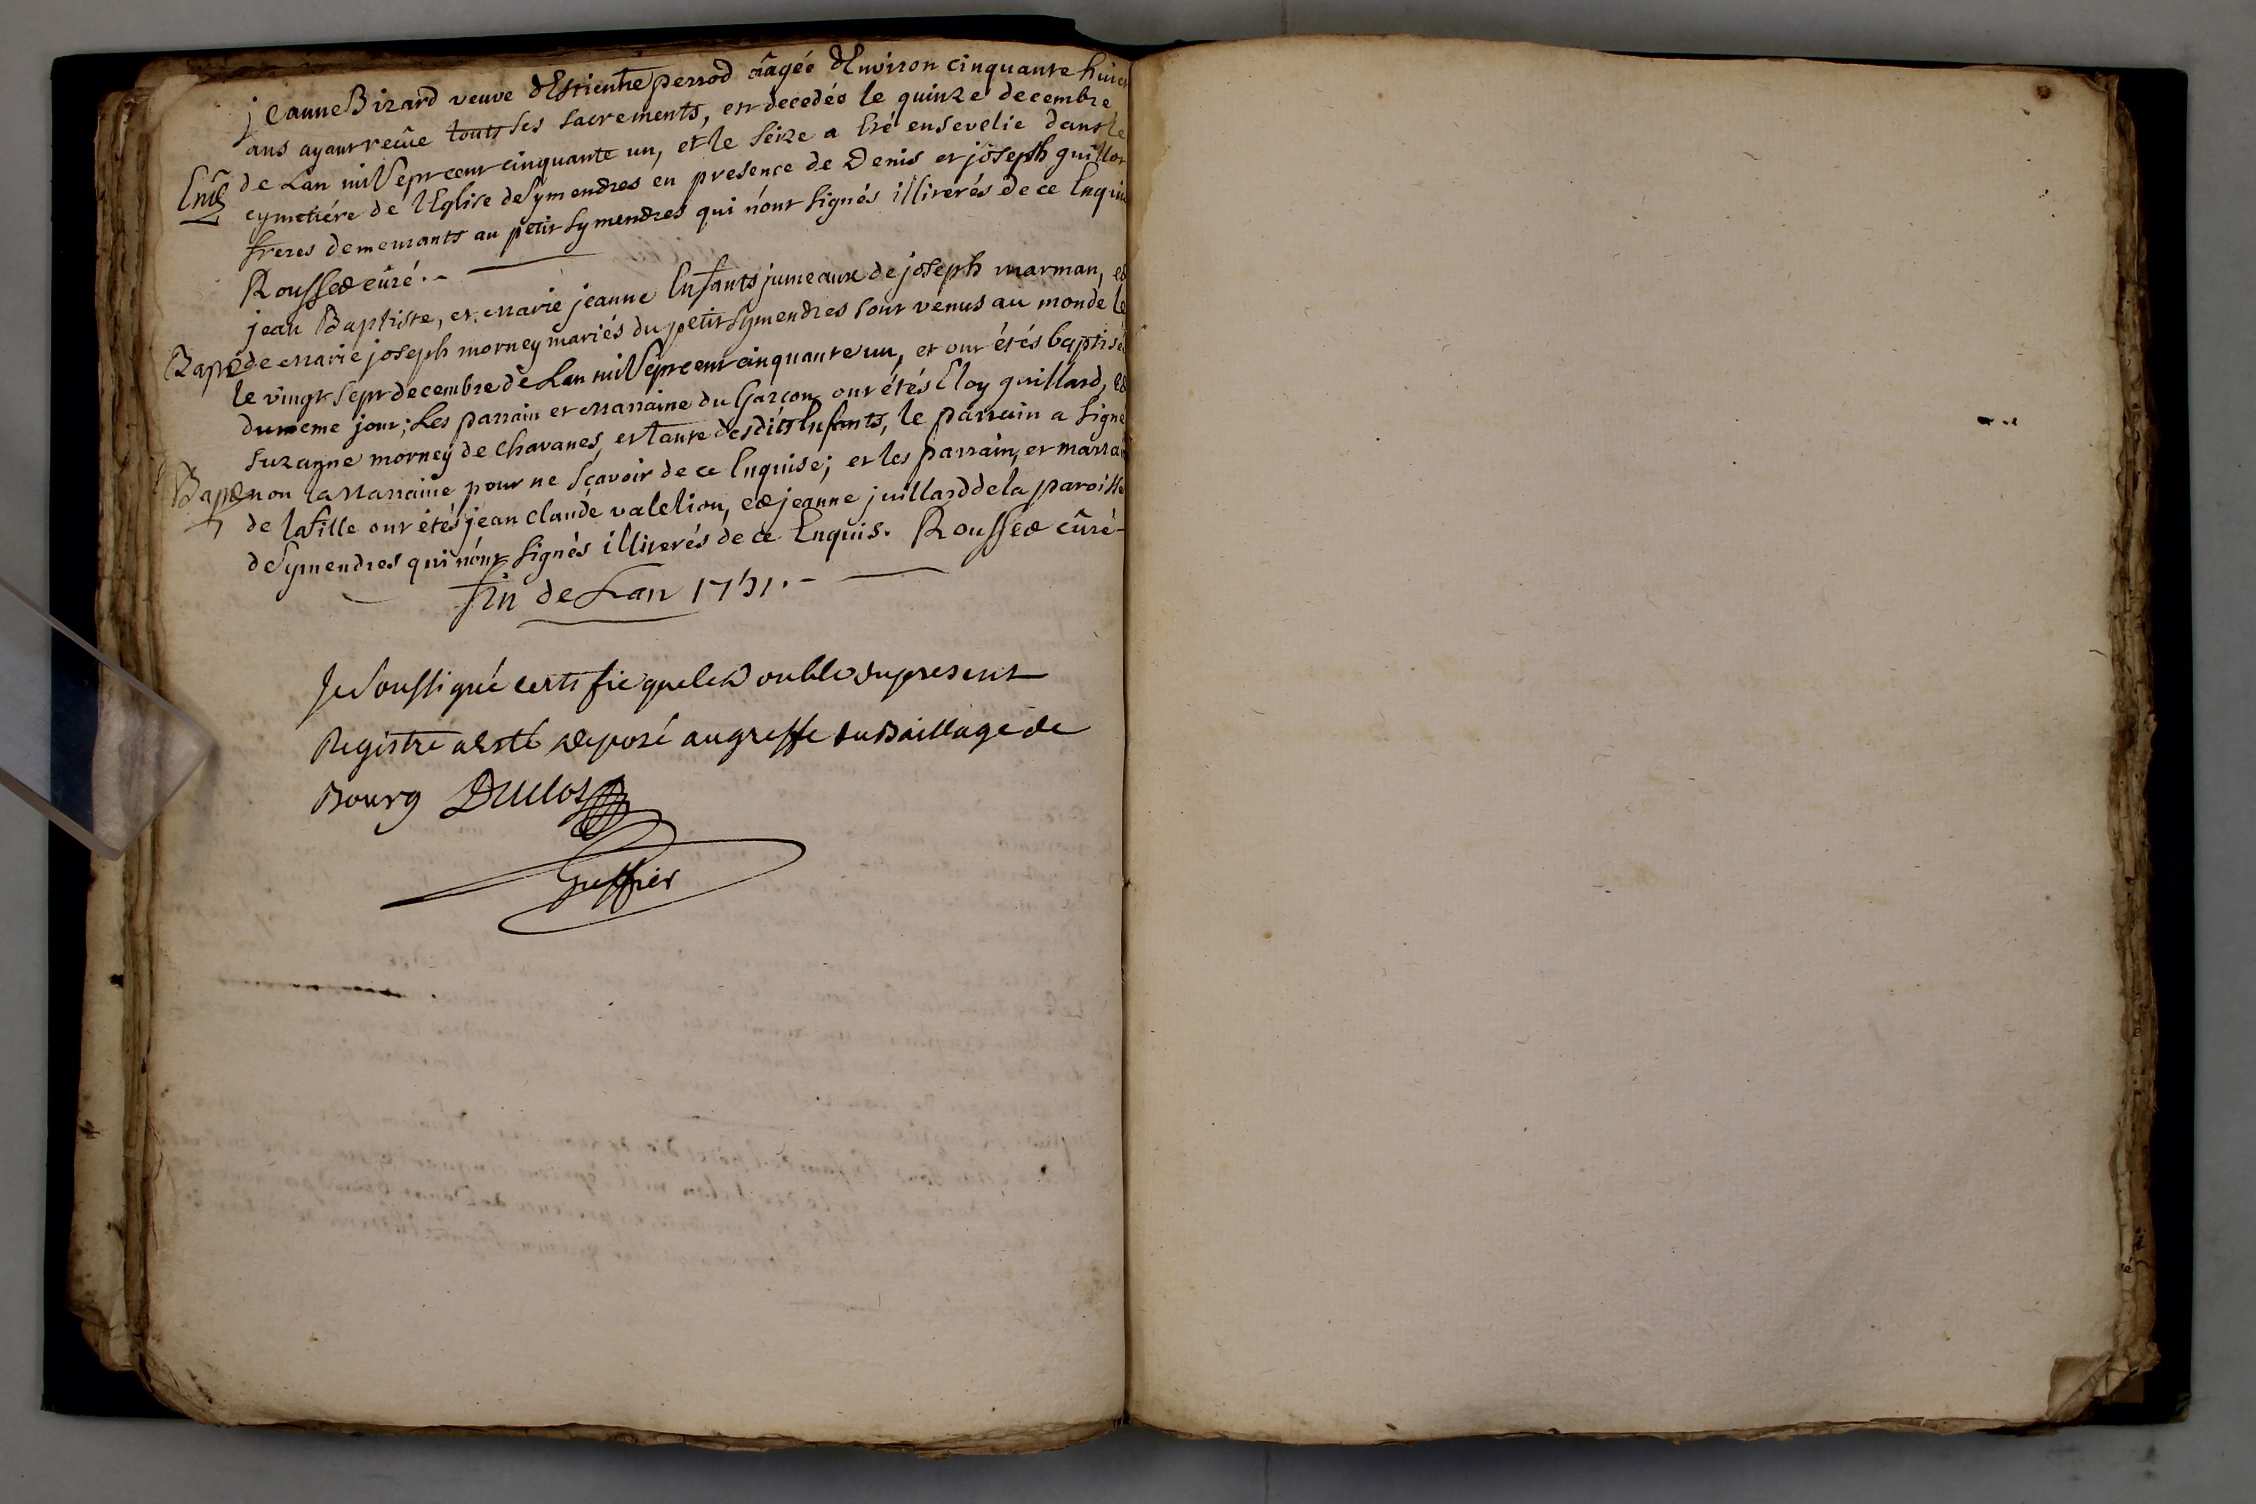 jeanne Bizard veuve dEstienne perrod aâgée dEnviron cinquante huict
ans ayant reçüe touts ses sacrements, est decedée le quinze decembre
Ent de Lan mil Sept cent cinquante un, et le seize a Eté ensevelie dans le
cymetiére de lEglise de Symendres en presence de Denis et joseph guillot
freres demeurants au petit Symendres qui n'ont signés illiterés de ce Enquis
Roussed curé.-
jean Baptiste, et marie jeanne Enfants jumeaux de joseph marman, ed
Bapt de marie joseph morney mariés du petit Symendres sont venus au monde le
le vingt sept decembre de Lan mil Sept cent cinquante un, et ont étés baptisés
du meme jour; Les parrain et marraine du Garçon ont étés Eloy guillard, ed
suzanne morney de Chavanes, et tante desdits Enfants, le parrain a signé
Bapt non la marraine pour ne sçavoir de ce Enquise; et les parrain, et marrain
de la fille ont étés jean claude valelion, ed jeanne juillard de la paroisse
de Symendres qui n'ont signés illiterés de ce Enquis. Roussed cûré-
fin de Lan 1751.-
Je Soussigné certifie que le Double du present
Registre a Esté deposé au greffe du Baillage de
Bourg Duclos
Greffier